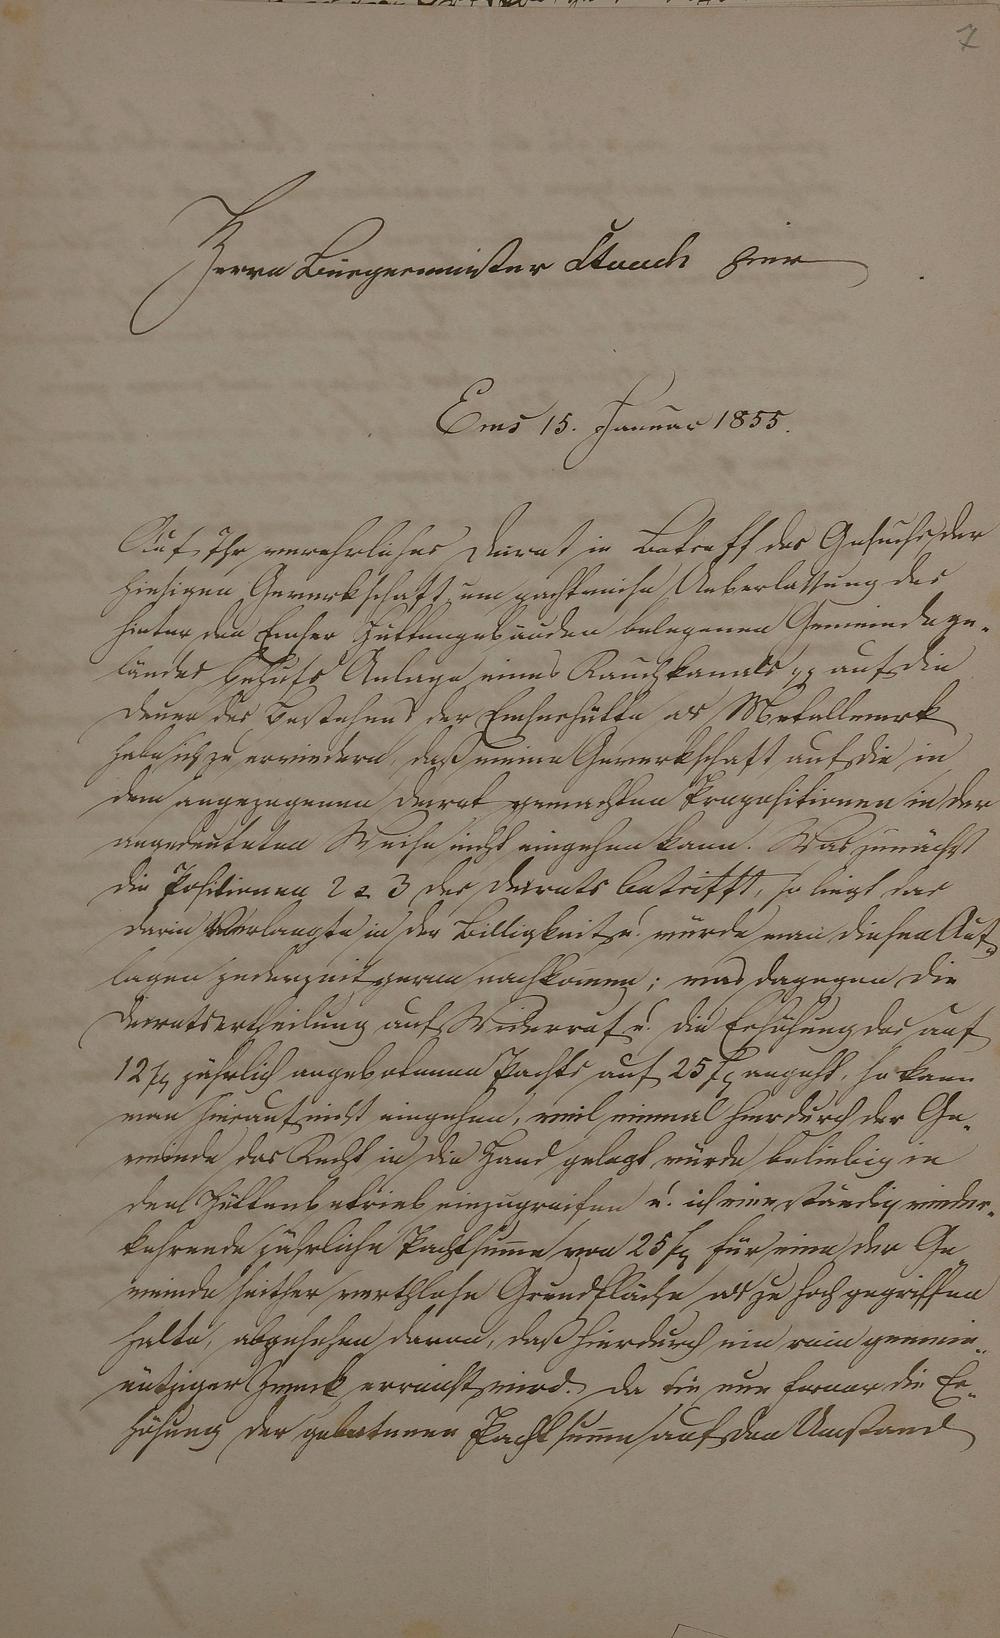 7
Herrn Bürgermeister Stauch hier
Ems 15. Januar 1855.
Auf Ihr verehrliches Decret in Betreff des Gesuchs der
hiesigen Gewerkschaft um pachtweise Ueberlassung des
hinter den Emser Hüttengebäuden belegenen Gemeindege-
ländes behufs Anlage eines Rauchkanals pp auf die
Dauer des Bestehens der Emserhütte als Metallwerk
habe ich zu erwiedern, daß meine Gewerkschaft auf die in
dem angezogenen Decret gemachten Propositionen in der
angedeuteten Weise nicht eingehen kann. Was zunächst
die Positionen 2 & 3 des Decrets betrifft, so liegt das
darin Verlangte in der Billigkeit u. würde man diesen Auf-
lagen jederzeit gerne nachkommen; was dagegen die
Decretsertheilung auf Widerruf u. die Erhöhung des auf
12 fl jährlich angebotenen Pachts auf 25 fl angeht, so kann
man hierauf nicht eingehen, weil einmal hierdurch der Ge-
meinde das Recht in die Hand gelegt würde beliebig in
den Hüttenbetrieb einzugreifen u. ich eine ständig wieder-
kehrende jährliche Pachtsumme von 25 fl für eine der Ge
meinde seither werthlose Grundfläche als zu hoch gegriffen
halte, abgesehen davon, daß hierdurch ein rein gemein-
nütziger Zweck erreicht wird. Da Sie nun ferner die Er-
höhung der gebotenen Pachtsumme auf den Umstand